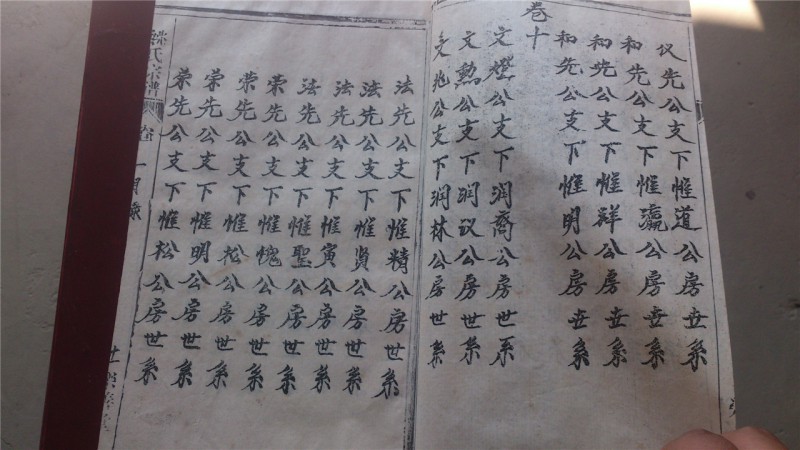 仪先公支下惟道公房世系
和先公支下惟瀛公房世系
和先公支下惟群公房世系
和先公支下惟明公房世系
卷十
文燈公支下润裔公房世系
文勲公支下润议公房世系
文兆公支下润林公房世系
法先公支下惟精公房世系
法先公支下惟贤公房世系
法先公支下惟寅公房世系
法先公支下惟聖公房世系
荣先公支下惟愧公房世系
荣先公支下惟松公房世系
荣先公支下惟明公房世系
荣先公支下惟松公房世系
氏宗谱